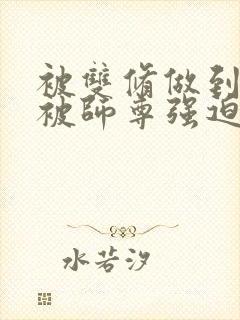 被雙脩做到
被師尊强迫
水若汐